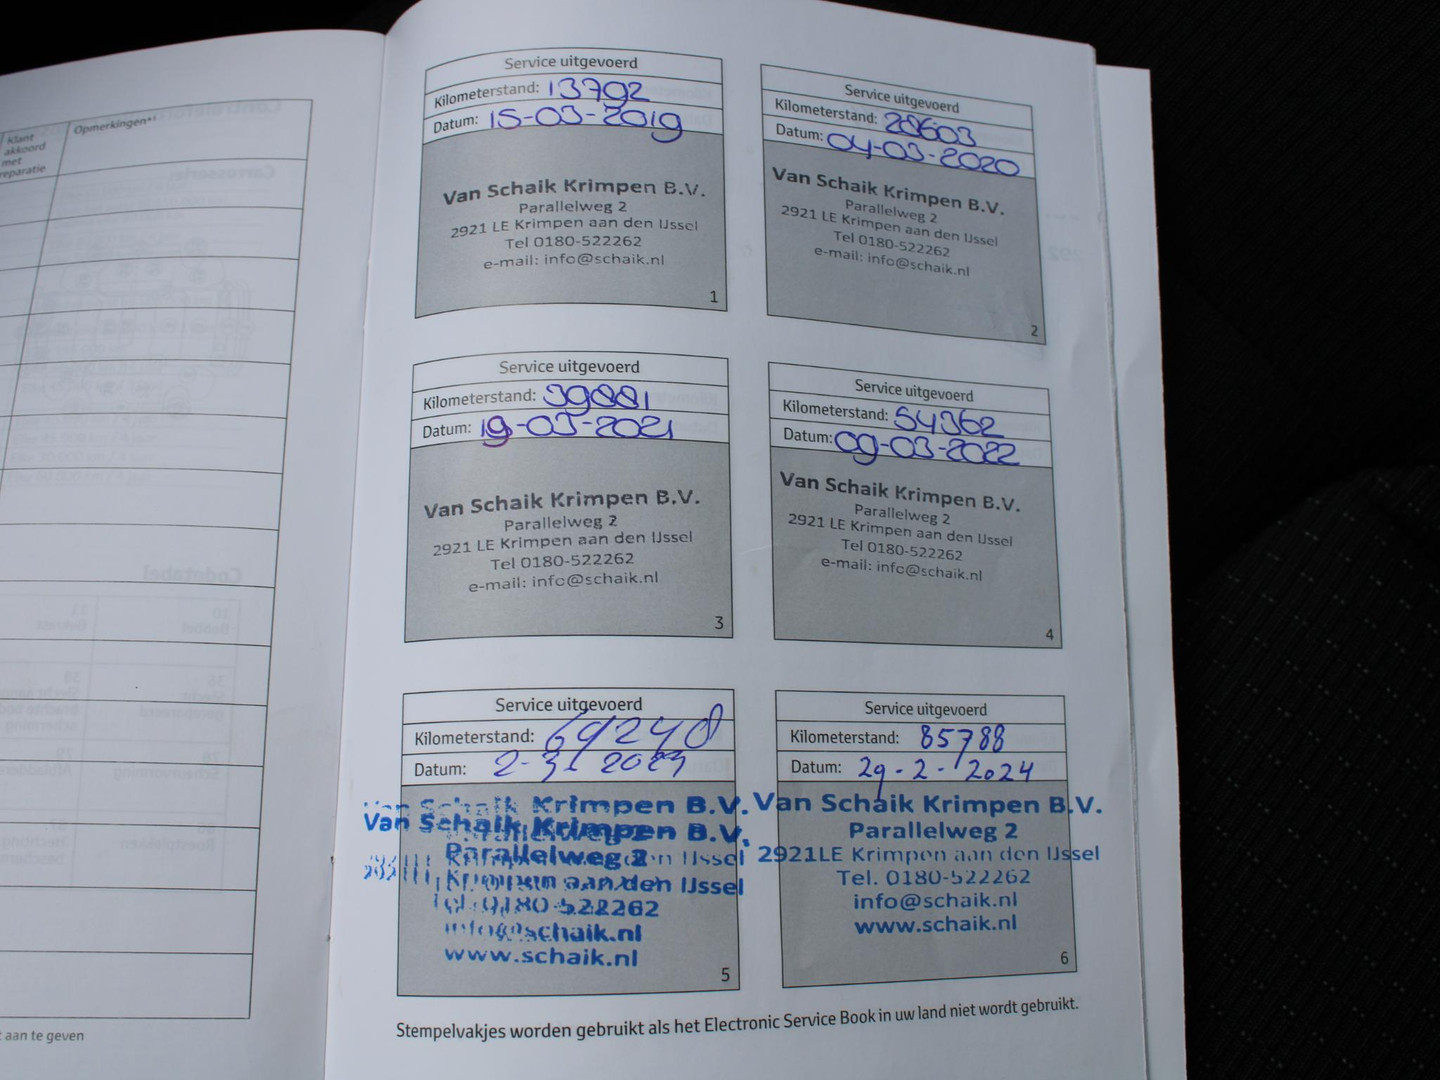 Klant
akkoord
met
reparatie
Opmerkingen**
t aan te geven
Service uitgevoerd
Kilometerstand: 13792
Datum: 15-03-2019
Van Schaik Krimpen B.V.
Parallelweg 2
2921 LE Krimpen aan den IJssel
Tel 0180-522262
e-mail: info@schaik.nl
1
Service uitgevoerd
Kilometerstand: 28603
Datum: 04-03-2020
Van Schaik Krimpen B.V.
Parallelweg 2
2921 LE Krimpen aan den IJssel
Tel 0180-522262
e-mail: info@schaik.nl
2
Service uitgevoerd
Kilometerstand: 39881
Datum: 19-03-2021
Van Schaik Krimpen B.V.
Parallelweg 2
2921 LE Krimpen aan den IJssel
Tel 0180-522262
e-mail: info@schaik.nl
3
Service uitgevoerd
Kilometerstand: 54362
Datum: 09-03-2022
Van Schaik Krimpen B.V.
Parallelweg 2
2921 LE Krimpen aan den IJssel
Tel 0180-522262
e-mail: info@schaik.nl
4
Service uitgevoerd
Kilometerstand: 69240
Datum: 2-3-2023
Van Schaik Krimpen B.V.
Van Schaik Krimpen B.V.
Parallelweg 2
Krimpen aan den IJssel
Tel. 0180-522262
info@schaik.nl
www.schaik.nl
5
Service uitgevoerd
Kilometerstand: 85788
Datum: 29-2-2024
Van Schaik Krimpen B.V.
Parallelweg 2
2921LE Krimpen aan den IJssel
Tel. 0180-522262
info@schaik.nl
www.schaik.nl
6
Stempelvakjes worden gebruikt als het Electronic Service Book in uw land niet wordt gebruikt.